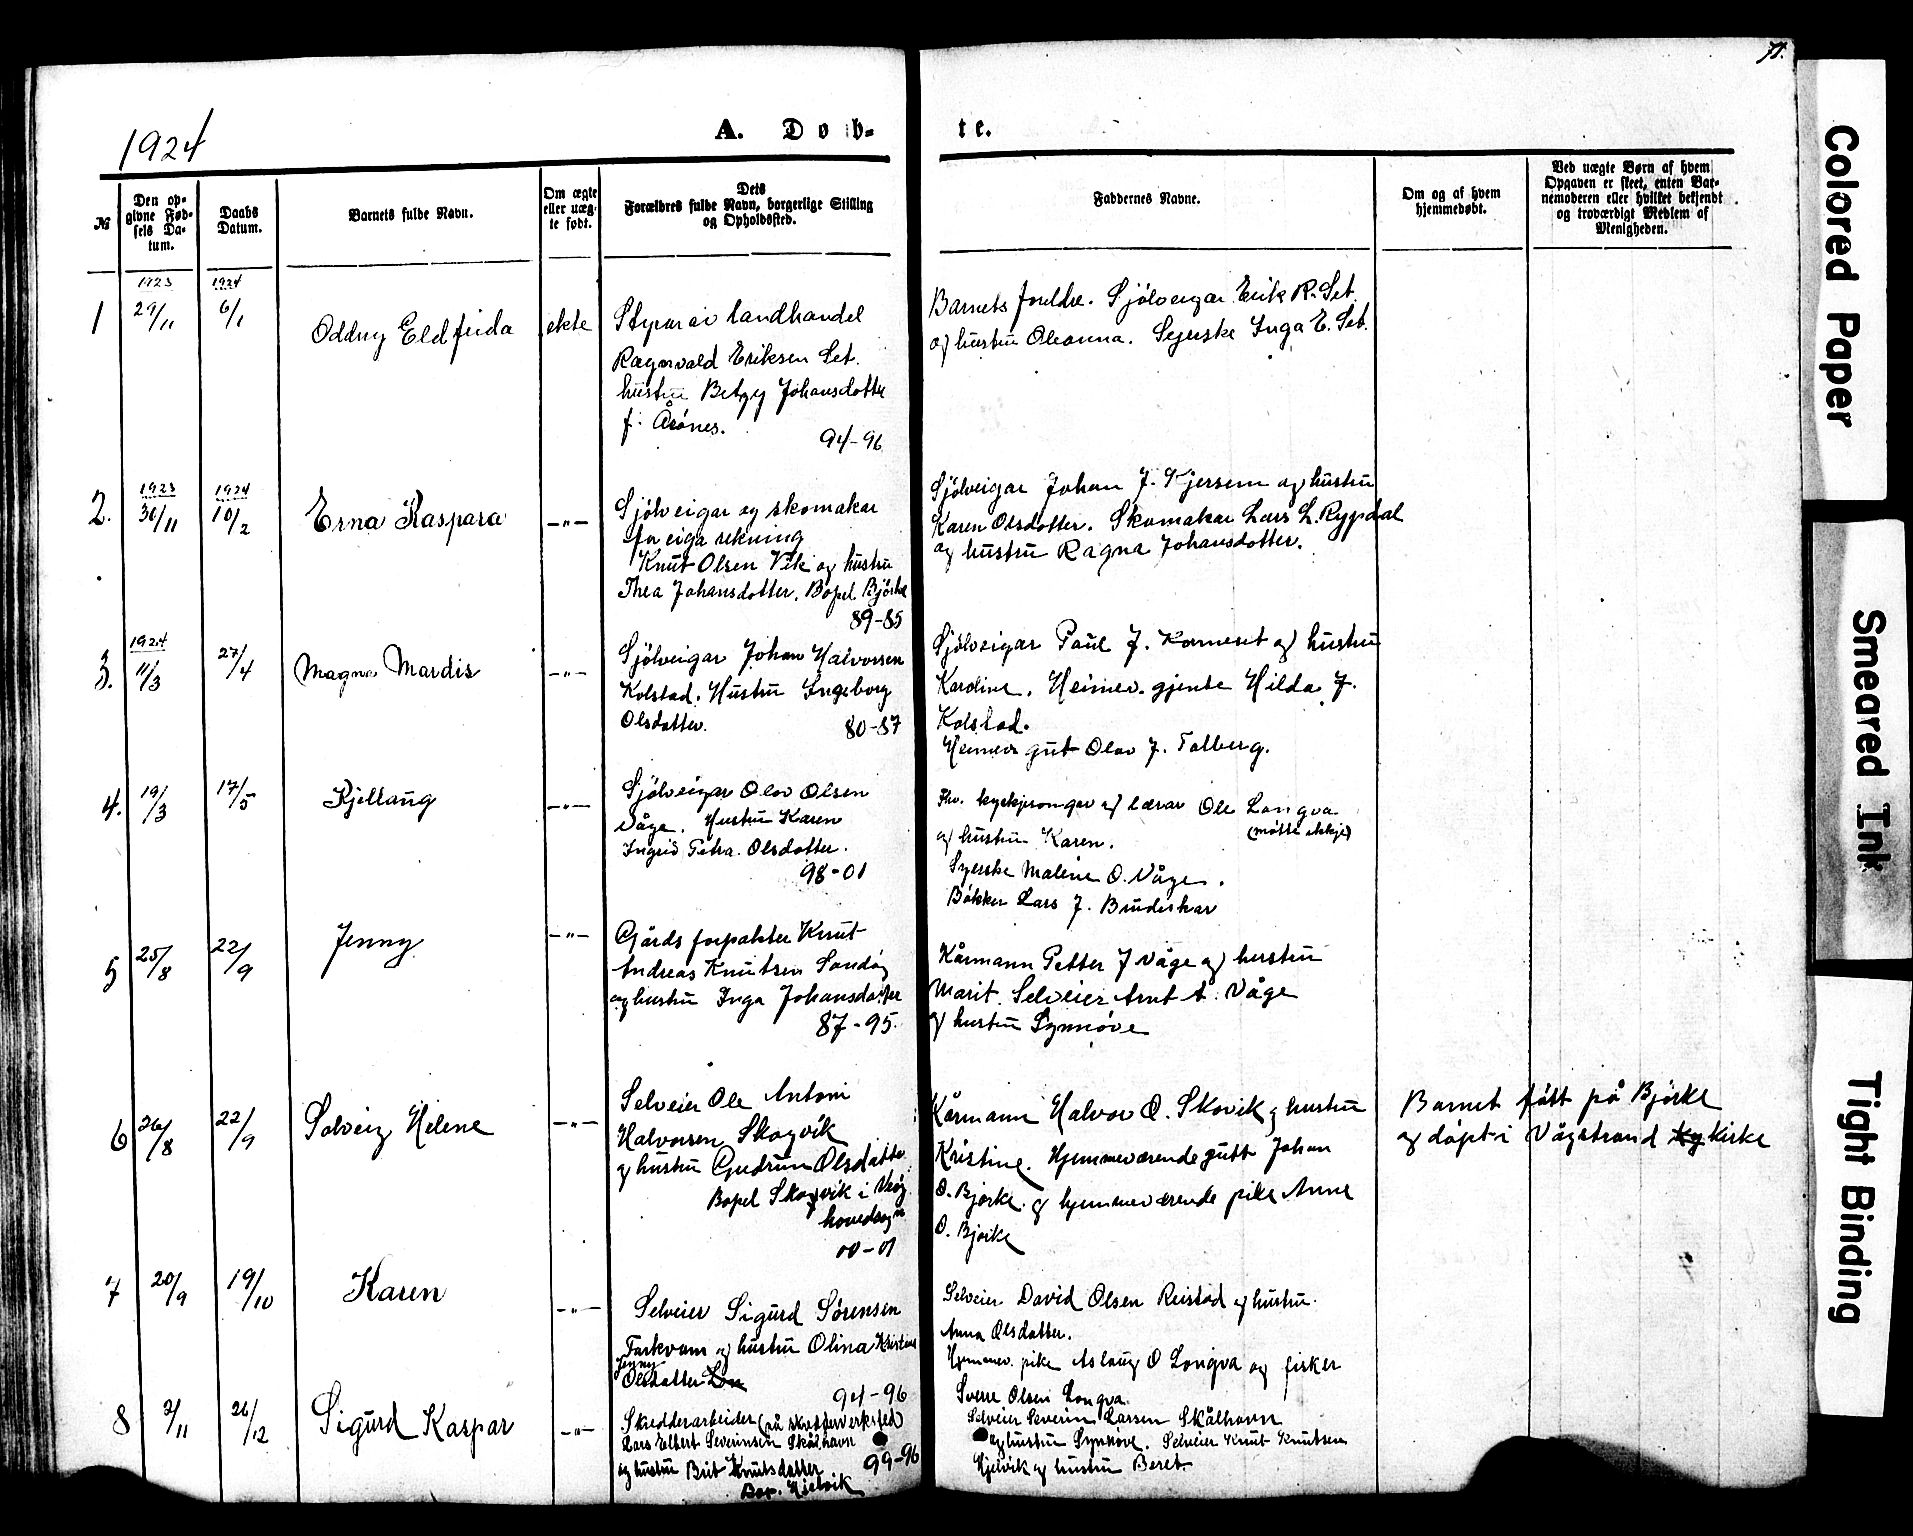 71.
1924
A. Døb-
te.
№
Den op-
givne Fød-
sels Da-
tum.
Daabs
Datum.
Barnets fulde Navn.
Om ægte
eller uæg-
te født.
Dets
Forældres fulde Navn, borgerlige Stilling
og Opholdssted.
Faddernes Navne.
Om og af hvem
hjemmedøbt.
Ved uægte Børn af hvem
Opgaven er skeet, enten Bar-
nemoderen eller hvilket bekjendt
og troværdigt Medlem af
Menigheden.
1
1923
29/11
1924
6/1
Oddny Eldfrida
ekte
Styrar av landhandel
Ragnvald Eriksen Set.
hustru Betzy Johansdotter
f. Årönes.
94-96
Barnets foreldre. Sjölveigar Erik R. Set
og hustru Oleanna. Syerske Inga E. Set.
2.
1923
30/11
1924
10/2
Erna Kaspara
—"—
Sjölveigar og skomakar
for eiga rekning
Knut Olsen Vik og hustru
Thea Johansdotter. Bopel Björke
89-85
Sjölveigar Johan J. Gjersem og hustru
Karen Olsdotter. Skomakar Lars L. Rypdal
og hustru Ragna Johansdotter.
3.
1924
11/3
27/4
Magne Mardis
—"—
Sjölveigar Johan Halvorsen
Kolstad. Hustru Ingeborg
Olsdotter.
80-87
Sjölveigar Paul J. Kormeset og hustru
Kardine. Heimev. gjente Hilda J.
Kolstad.
Heimev gut Olav J. Talberg.
4.
19/3
17/5
Kjellaug
—"—
Sjölveigar Olav Olsen
Våge. Hustru Karen
Ingrid Petra Olsdotter.
98-01
Fhv. kyrkjesongar og lærar Ole Longva
(møtte ikkje)
og hustru Karen.
Syerske Malene O. Våge.
Bökker Lars J. Brudeskar
5
25/8
22/9
Jenny
—"—
Gårds forpakter Knut
Andreas Knutsen Sandøy
og hustru Inga Johansdatter
87-95.
Kårmann Petter J Våge og hustru
Marit. Selveier Arnt A. Våge
og hustru Synnöve
6
26/8
22/9
Solveig Helene
—"—
Selveier Ole Antoni
Halvorsen Skogvik
og hustru Gudrun Olsdatter
Bopel Skogvik i Vestg
hovedsogn
00-01
Kårmann Halvor O. Skovik og hustru
Kristine. Hjemmeværende gutt Johan
O. Bjørke og hjemmeværende pike Anne
O. Bjørke
Barnet født på Björke
og døpt i Vågstrand Ky kirke
7
20/9
19/10
Karen
—"—
Selveier Sigurd Sörensen
Farkvam og hustru Olina Kristine
Jenny
Olsdatter
94-96
Selveier David Olsen Reistad og hustru
Anna Olsdatter.
Hjemmev. pike Aslaug O Longva og fisker
Sverre Olsen Longva.
8
2/11
26/12
Sigurd Kaspar
—"—
Skredderarbeider (på skredderverksted)
Lars Elbert Severinsen Skålhavn
og hustru Brit Knutsdatter
99-96
Bop. Hjelvik
Selveier Severin Larsen Skålhavn
og hustru Synnöve. Selveier Knut Knutsen
Hjelvik og hustru Beret.
Colored Paper
Smeared Ink
Tight Binding